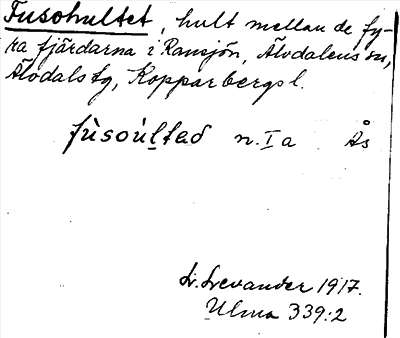 Fusohultet, hult mellan de fy-
ra fjärdarna i Ransjön, Älvdalens sn,
Älvdals tg, Kopparbergs l.
fùsoúltad n. I a Ås
L. Levander 1917.
Ulma 339:2